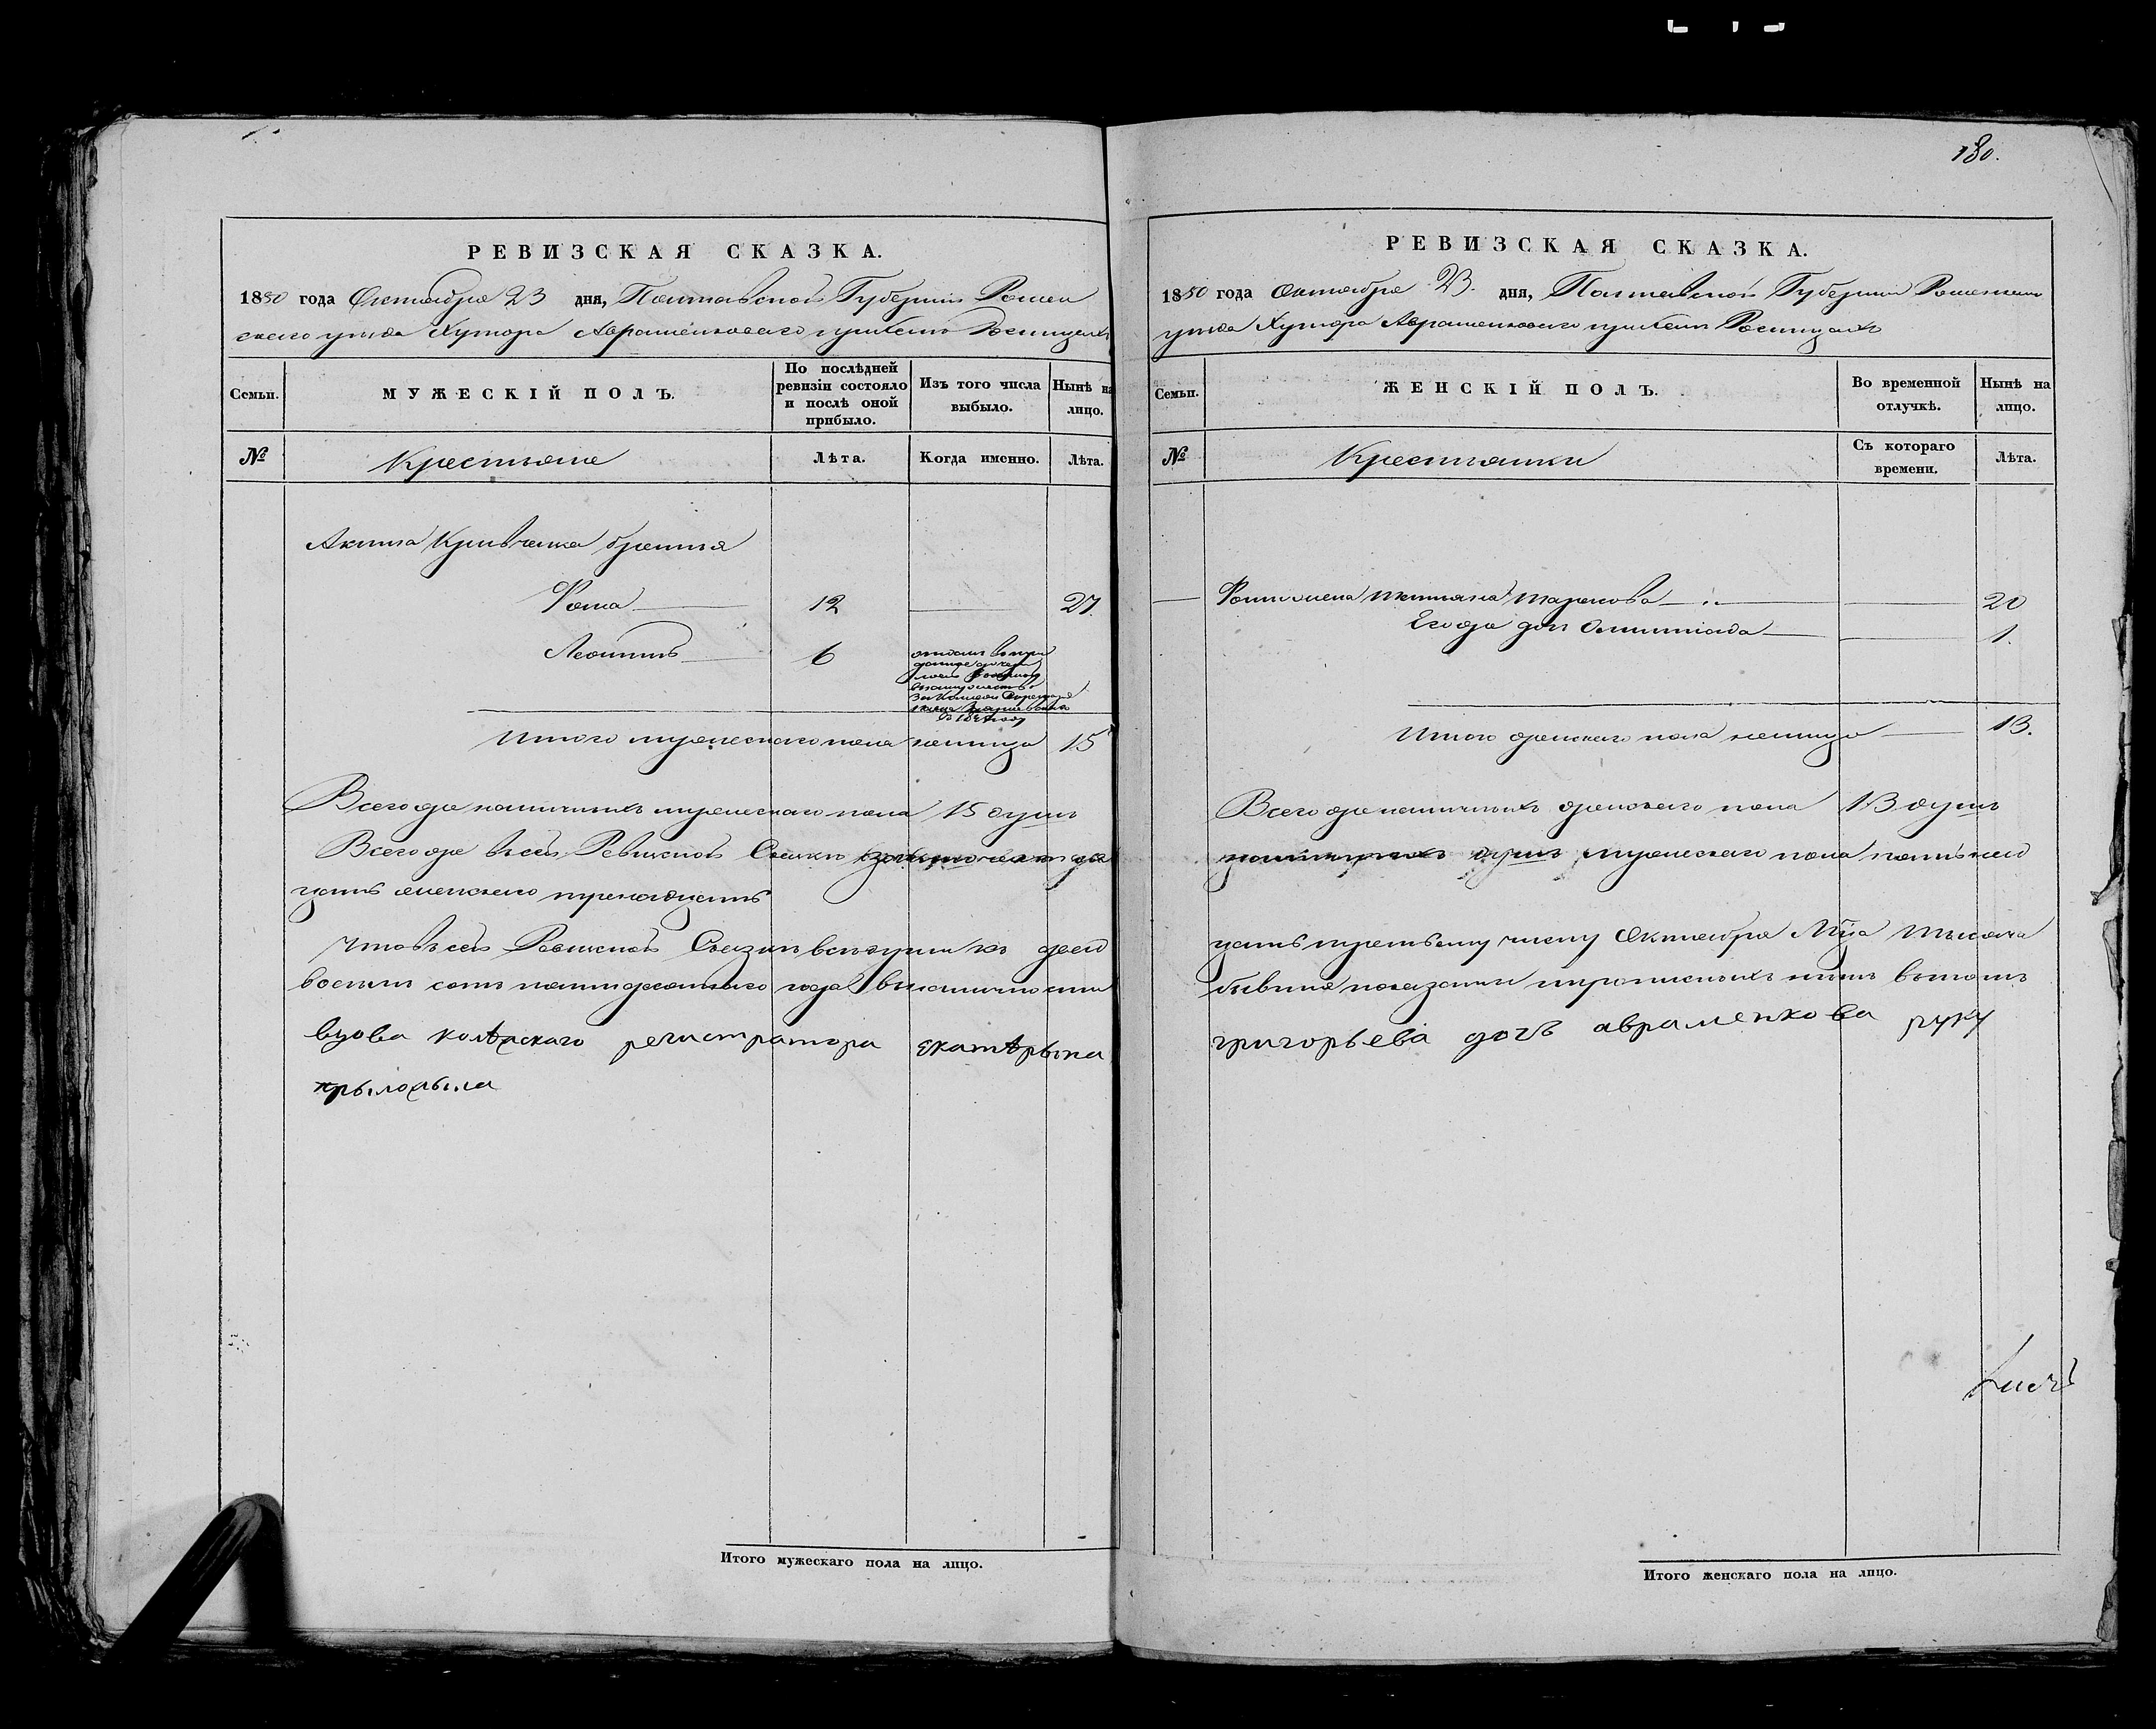 180.
РЕВИЗСКАЯ СКАЗКА.
1850 года Октября 23 дня, Полтавской Губернии Ромен
скаго уезда Хутора Авраменковаго
Семьи.
МУЖЕСКІЙ ПОЛЪ.
По послѣдней ревизіи состояло и послѣ оной прибыло.
Изъ того числа выбыло.
Нынѣ на лицо.
№
Крестьяне
Лѣта.
Когда именно.
Лѣта.
Акима Кривченка братья
Фома 12 27.
Леонтий 6
в 184 году
Итого мужескаго пола налицо 15
Всего же наличных мужескаго пола 15 душ
Всего же в сей Ревизской Сказки
цать женскаго тренадцать
Что в сей Ревизской Сказки все души к двад
восемь сот пятидесятого года в наличности
вдова колѣжскаго регистратора екатѣрына
прыложыла
Итого мужескаго пола на лицо.
РЕВИЗСКАЯ СКАЗКА.
1850 года Октября 23. дня, Полтавской Губернии Роменскаго
уезда Хутора Авраменковаго
Семьи.
ЖЕНСКІЙ ПОЛЪ.
Во временной отлучкѣ.
Нынѣ на лицо.
№
Крестьянки
Съ котораго времени.
Лѣта.
Фомы жена Татьяна Тарасова 20
Его же дочь Олимпиада 1.
Итого женскаго пола налицо 13.
Всего же наличных женскаго пола 13 душ
душ мужескаго пола пятнад
цать третьему числу Октября Мца Тысяча
бывшие показаны прописных нет в том
григорьева дочъ авраменкова руку
Итого женскаго пола на лицо.